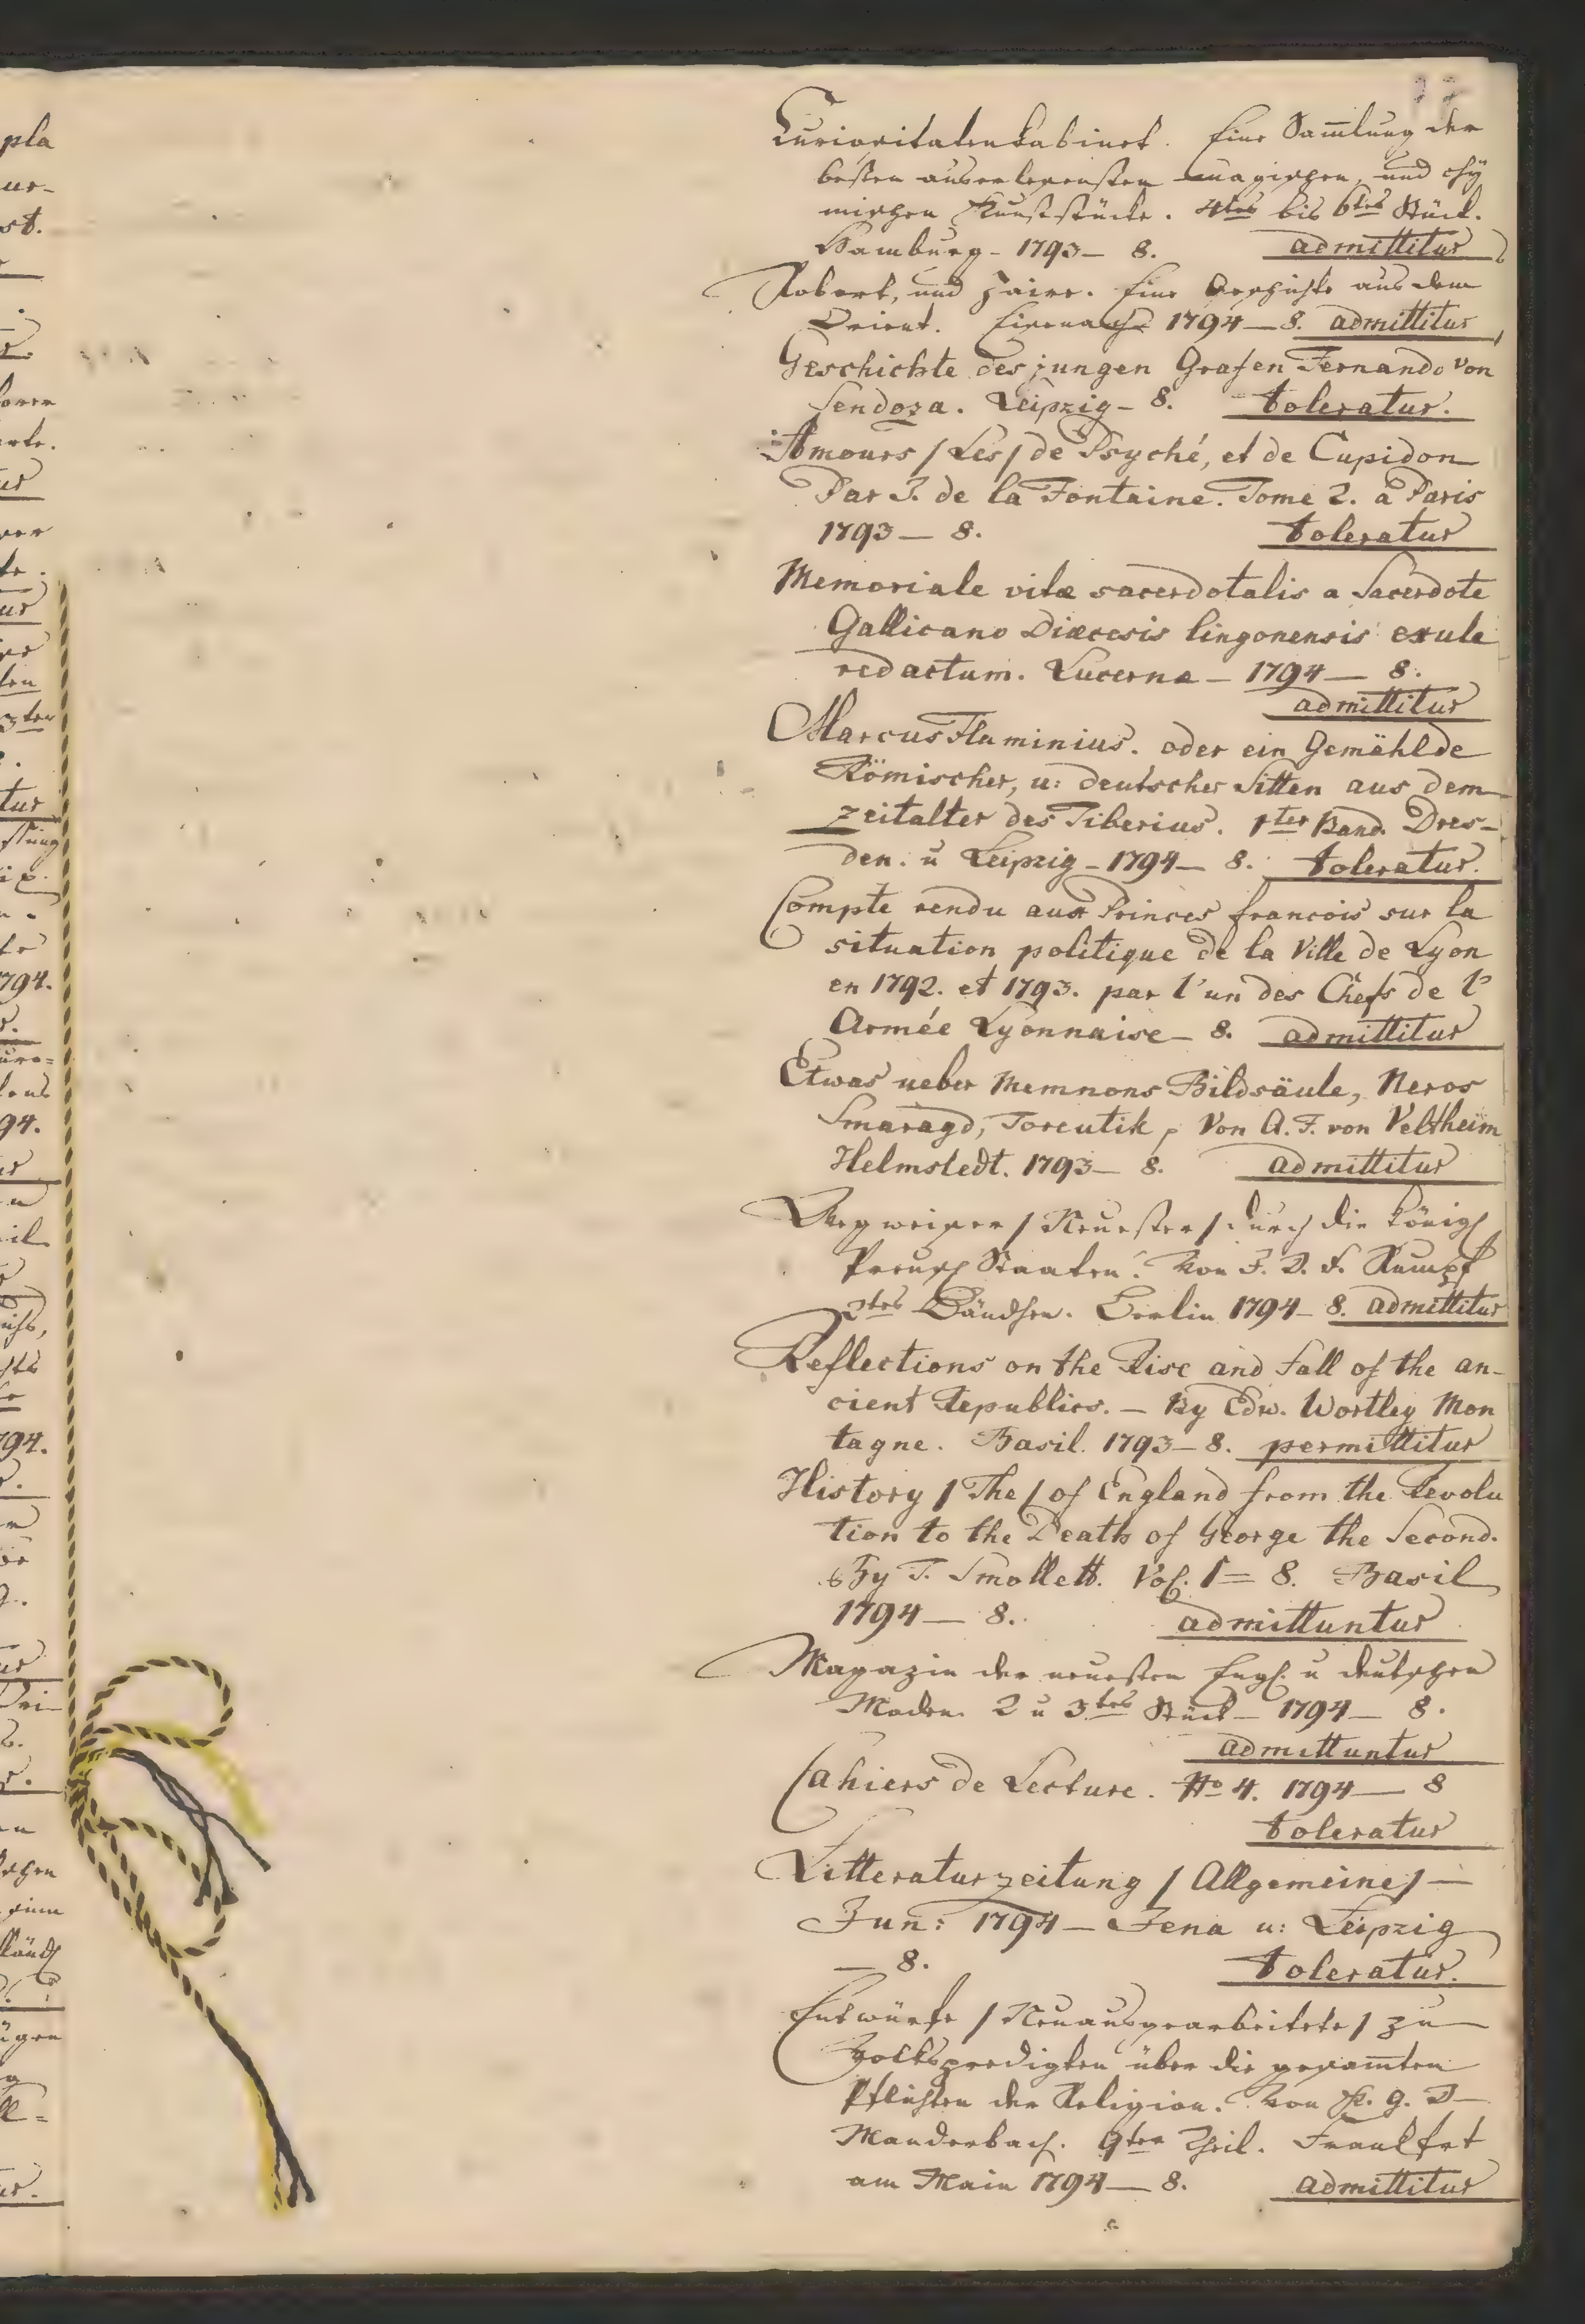 Curiositatenkabinet. Eine Sam̅lung der
besten auserlesensten magischen, und chy
mischen Kunststücke. 4tes bis 6tes Stück.
Hamburg - 1793 - 8. admittitur
Robert, und Zaire. Eine Geschichte aus dem
Orient. Eisenach 1794 - 8. admittitur
Geschichte des jungen Grafen Fernando von
Sendoza. Leipzig - 8. toleratur.
Amours / Les / de Psyché, et de Cupidon
Par J. de la Fontaine. Tome 2. à Paris
1793 - 8. toleratur
Memoriale vitæ sacerdotalis a Sacerdote
Gallicano Diæcesis lingonensis exule
redactum. Lucernæ - 1794 - 8.
admittitur
Marcus Flaminius. oder ein Gemählde
Römischer, u: deutscher Sitten aus dem
Zeitalter des Tiberius. 1ter Band. Dres-
den. u Leipzig - 1794 - 8. toleratur.
Compte rendu aux Princes francois sur la
situation politique de la Ville de Lyon
en 1792. et 1793. par l'un des Chefs de l'
Armée Lyonnaise - 8. admittitur
Etwas ueber Memnons Bildsäule, Neros
Smaragd, Toreutik, Von A. F. von Veltheim
Helmstedt. 1793 - 8. admittitur
Wegweiser / Neuester / durch die Königl
Preuß Staaten. Von J. D. F. Rumpf
2tes Bändchen. Berlin 1794 - 8. admittitur
Reflections on the Rise and Fall of the an-
cient Republics. - By Edw. Wortley Mon
tagne. Basil. 1793 - 8. permittitur
History / The / of England from the Revolu
tion to the Death of George the Second.
By T. Smollett. Vol. 1 = 8. Basil
1794 - 8. admittuntur
Magazin der neuesten Engl. u deutschen
Moden. 2 u 3tes Stück - 1794 - 8.
admittuntur
Cahiers de Lecture. No 4. 1794 - 8
toleratur
Litteraturzeitung / Allgemeine / -
Jun: 1794 - Jena u: Leipzig
- 8. toleratur.
Entwürfe / Neuausgearbeitete / zu
Volkspredigten über die gesam̅ten
Pflichten der Religion. Von K. G. D
Manderbach. 9ter Theil. Frankfrt
am Main 1794 - 8. admittitur